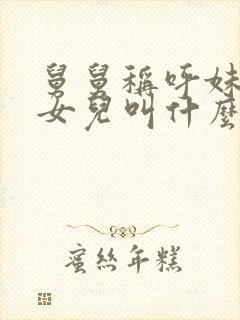 舅舅稱呼妹
女兒叫什麼
蜜絲年糕